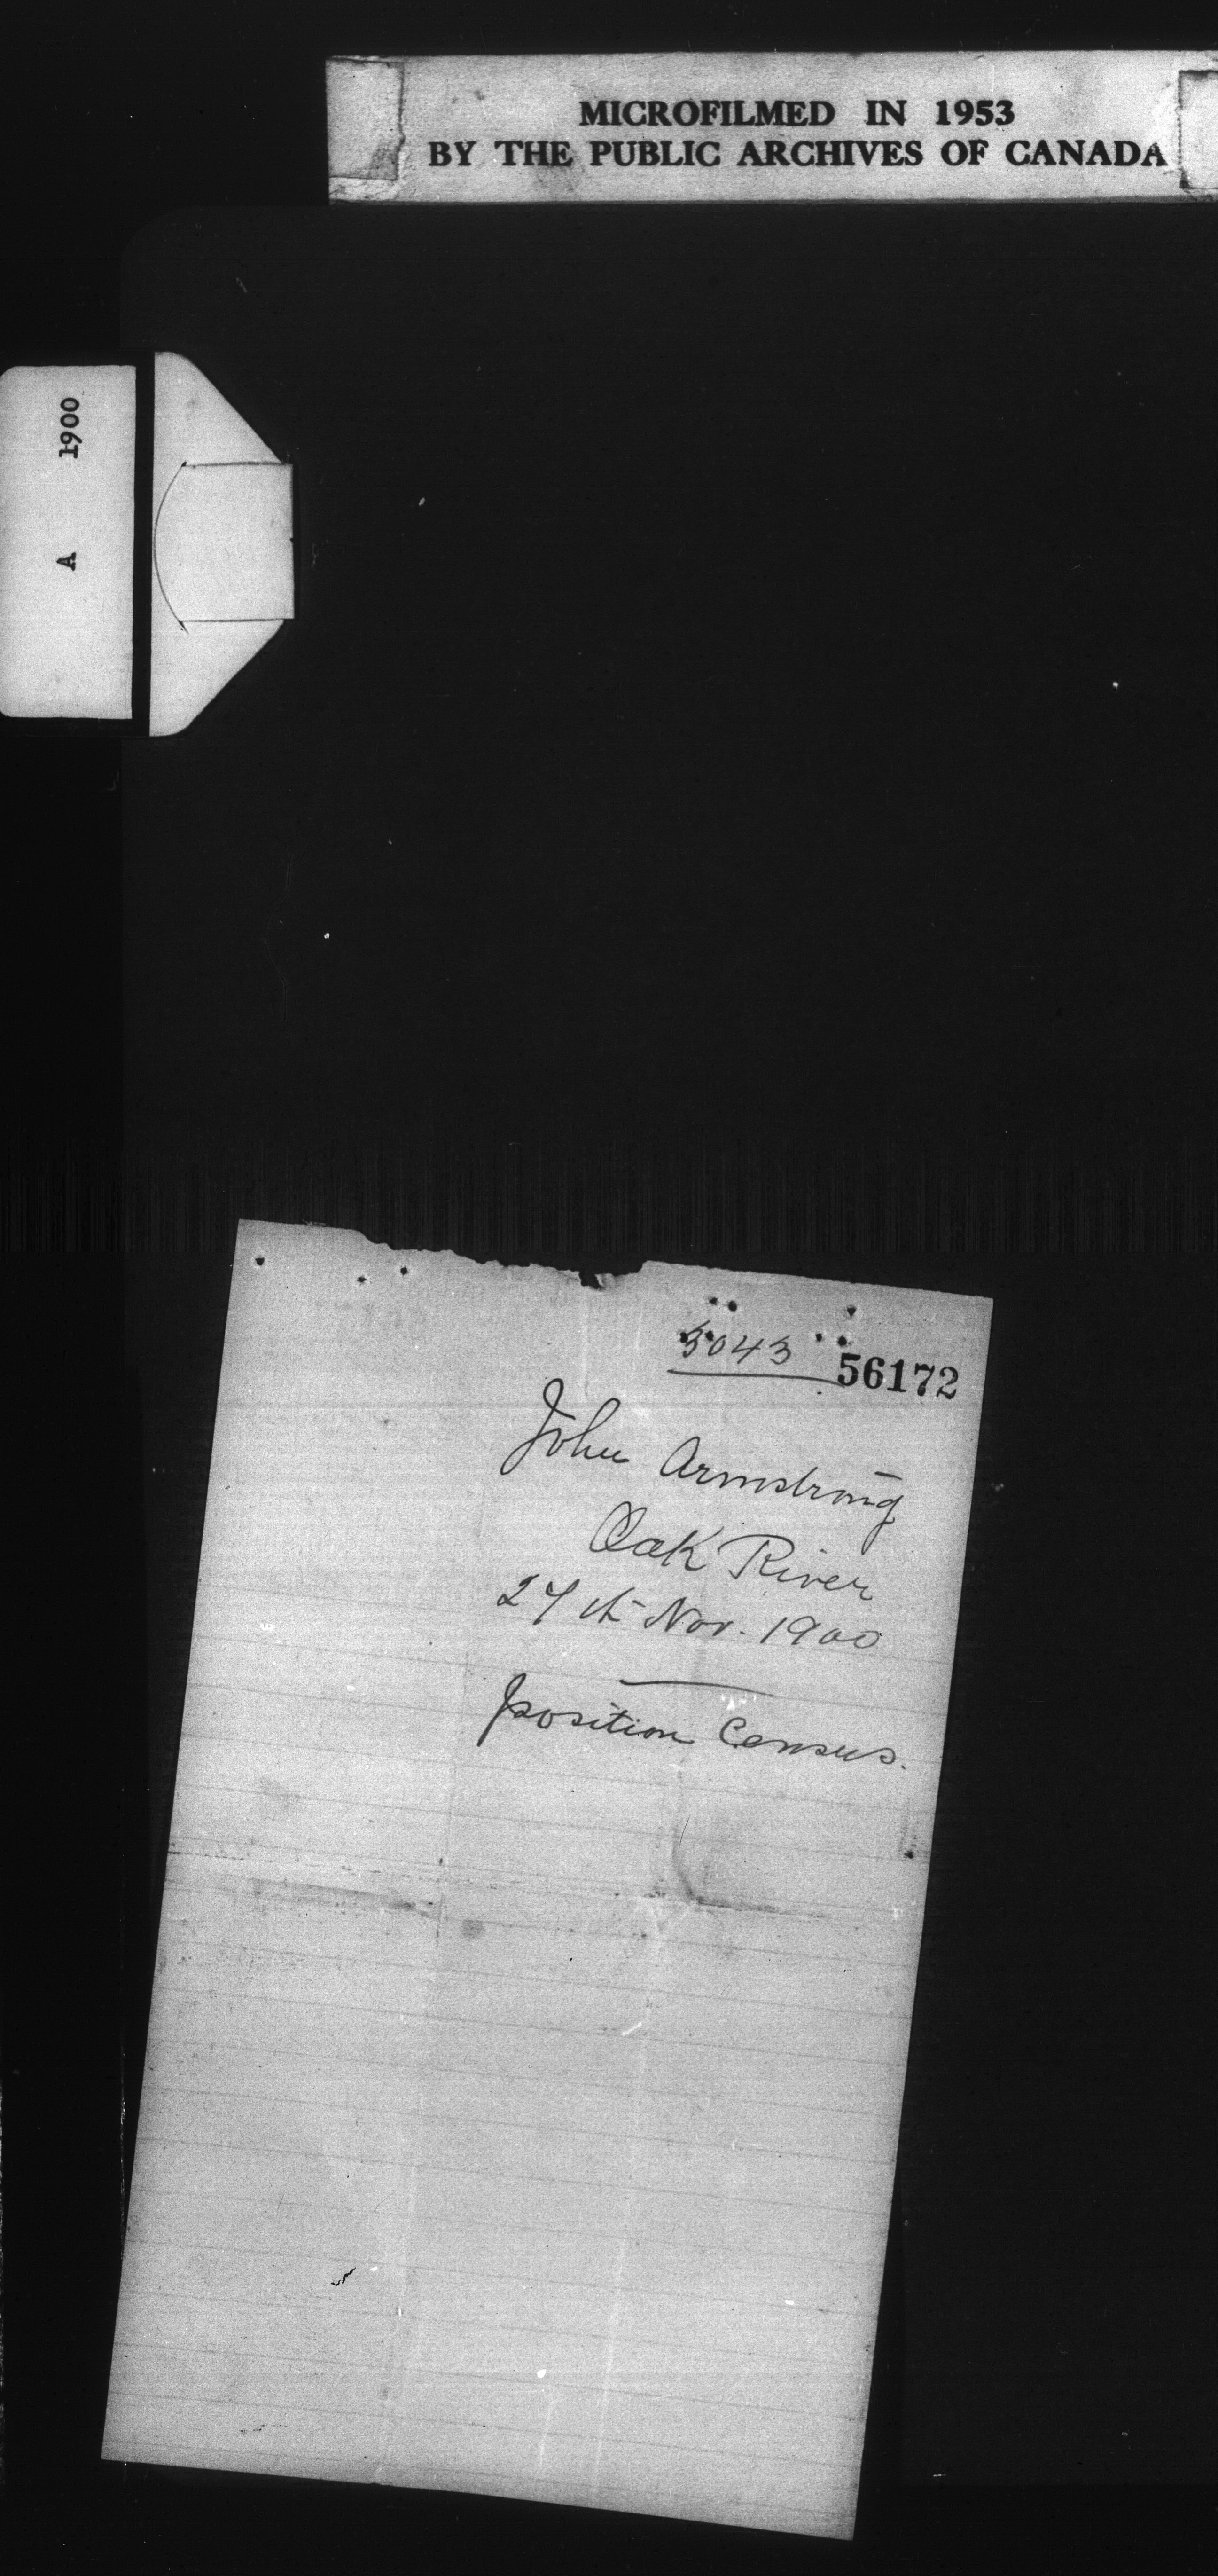 MICROFILMED IN 1953
BY THE PUBLIC ARCHIVES OF CANADA
A 1900
3043 56172
John Armstrong
Oak River
27th Nov. 1900
position Census.